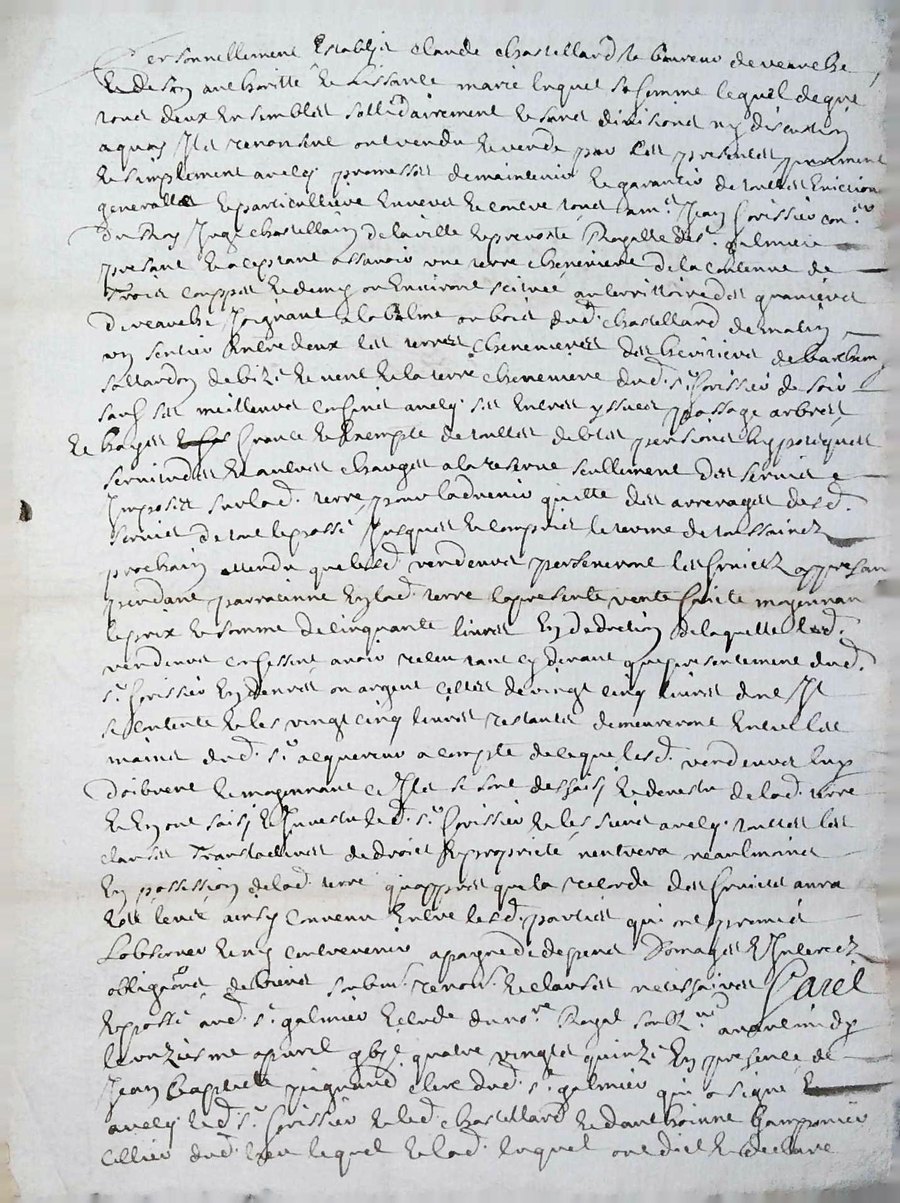 Personnellement establys claude chastellard laboureur de veauche
et de son authoritté et lissance marie luquet sa femme lequel de gré
tous deux ensembles sollidairement et sans divisions ny discution
a quoy ils renonsent ont vendu et vende par les presentes purement
et simplement avecq promesses de maintenir et garantir de touttes eviction
generalle et particulliere envers et contre tous a mr Jean Corissier conr
du Roy Juge chastellain de la ville et prevosté Royalle de st galmier
presant et aceptant assavoir une terre cheneviere de la contenue de
Trois couppes et demy ou environt scituée au territtoire des
de veauche Joignant a la balme ou bois dud. chastellard de matin
un sentier entre deux les terres chenevieres des heritiers de barthelemy
de bize et vent et la terre cheneviere dud. sr Corissier de soir
sauf ses meilleurs confins avecq ses entrees yssues passage arbres
et hayes franche et exempte de touttes debtes pensions hypotecques
servitudes et autres charges a la reserve seullement des servis
Imposés sur lad. terre pour ladvenir quitte des arrerages desd.
servis de tout le passé Jusques et compris le terme de toussaincts
prochain attendu que lesd. vendeurs perseveront les fruictz appresan
pendant par racinne en lad. terre la presente vente faicte moyennan
le prix et somme de cinquante livres en deduction de laquelle lesd.
vendeurs confessent avoir receu tant cy devant que presentement dud.
sr Corissier en denrés ou argent celles de vingt cinq livres dont ils
se contente et les vingt cinq livres restantes demeureront entre les
mains dud. sr acquereur a compte de ce que lesd. vendeurs luy
doibvent et moyennant ce Ils se sont dessaisy et devestu de lad. terre
et en ont saisy et Investu led. sr Corissier et les siens avecq touttes les
clauses Translatives de droit et proprieté n'entrera neaulmoins
en possession de lad. terre qu'appres que la recorde des fruictes aura
estés levée ainsy convenu entre lesd. parties qui ont promis
l'observer et ny contrevenir a payne de depens Domages et Interest
obligaons de biens soubm. renon. et clauses necessaires faict
et passé aud. st galmier estude du nore Royal soubzné avant midy
le onziesme apvril gbjc quatre vingts quinze en presence de
Jean baptiste clerc dud. st galmier qui a signé
avecq led. sr Corissier et led. chastellard et d'anthoinne
cellier dud. lieu lequel et lad. luquet ont dict et declaré